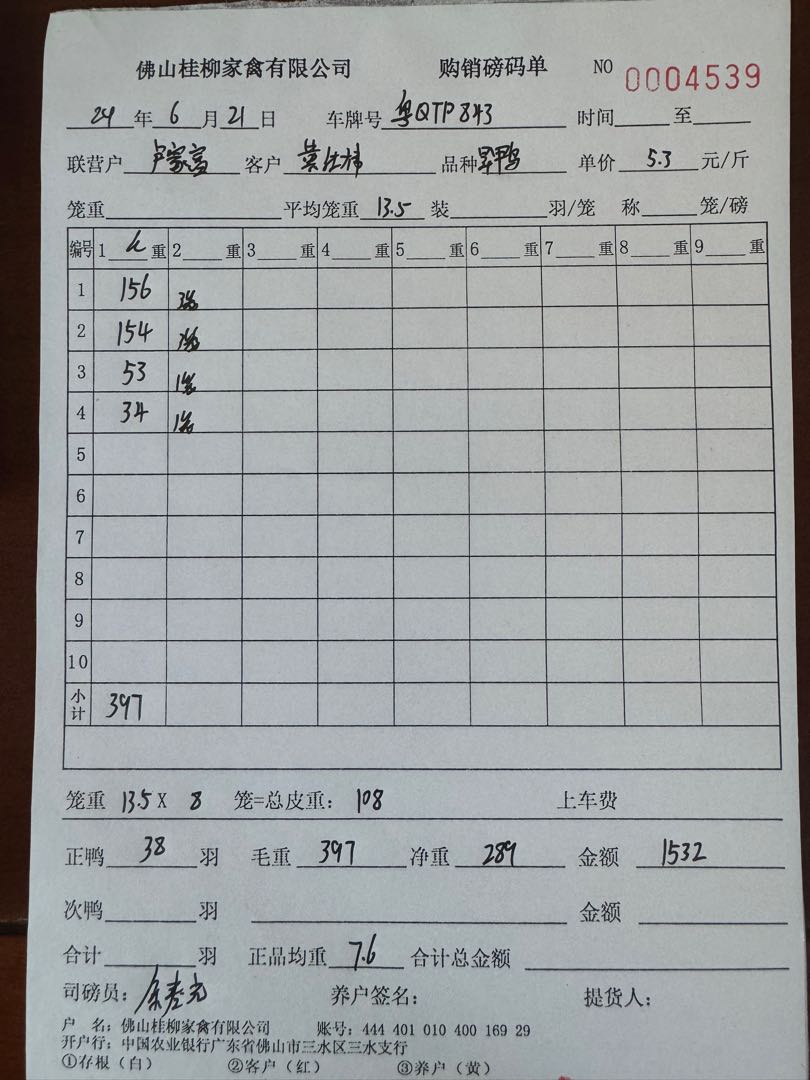 佛山桂柳家禽有限公司 购销磅码单 NO 0004539
24 年 6 月 21 日 车牌号 粤QTP843 时间 至
联营户 卢家富 客户 品种 单价 5.3 元/斤
笼重 平均笼重 13.5 装 羽/笼 称 笼/磅
编号 1 重 2 重 3 重 4 重 5 重 6 重 7 重 8 重 9 重
1 156
2 154
3 53
4 34
5
6
7
8
9
10
小计 397
笼重 13.5 X 8 笼=总皮重: 108 上车费
正鸭 38 羽 毛重 397 净重 289 金额 1532
次鸭 羽 金额
合计 羽 正品均重 7.6 合计总金额
司磅员: 养户签名: 提货人:
户 名: 佛山桂柳家禽有限公司 账号: 444 401 010 400 169 29
开户行: 中国农业银行广东省佛山市三水区三水支行
①存根(白) ②客户(红) ③养户(黄)